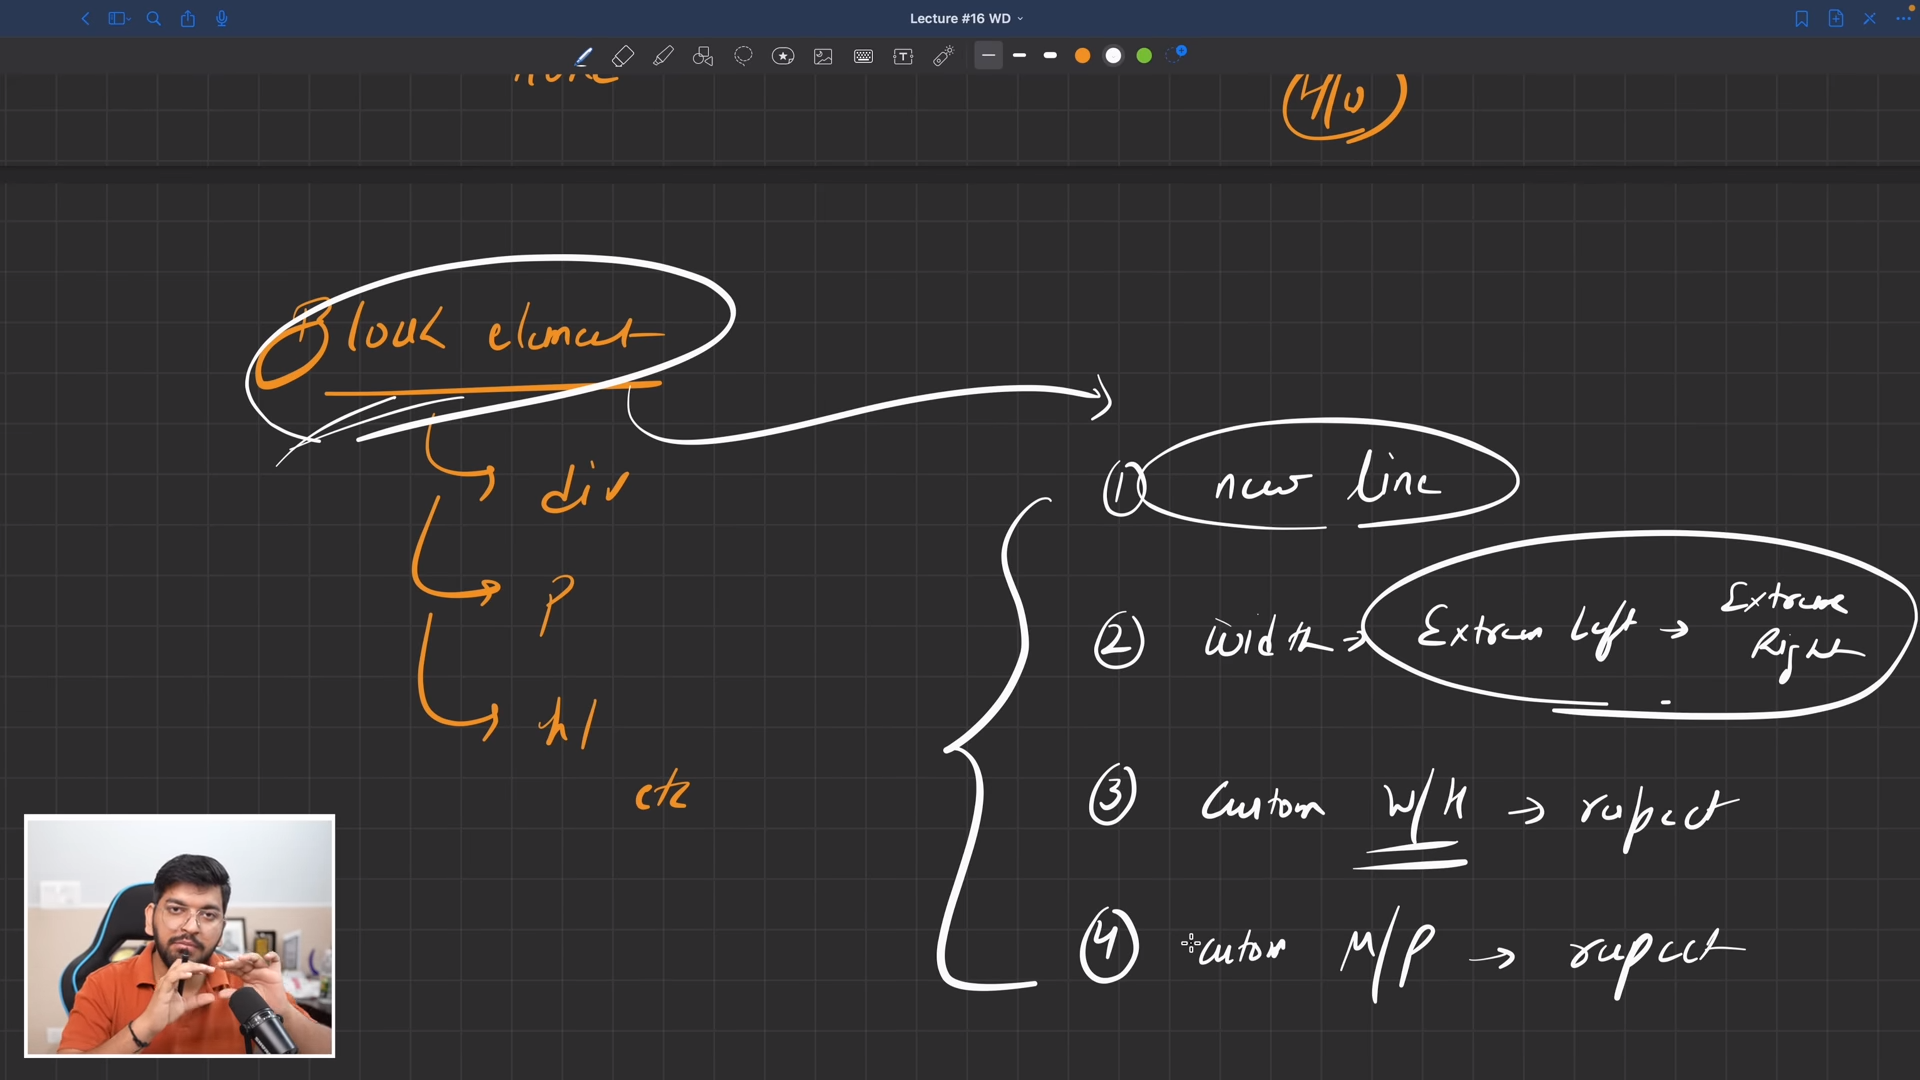 Lecture #16 WD
H/W
Block element
div
p
h1
etc
① new line
② Width → Extrem Left → Extreme Right
③ Custom W/H → respect
④ custom M/P → respect